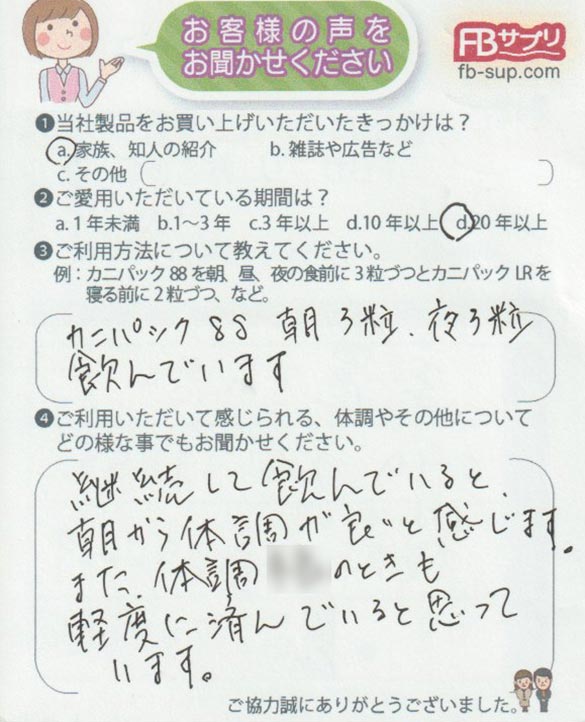 お客様の声を
お聞かせください
FBサプリ
fb-sup.com
❶当社製品をお買い上げいただいたきっかけは？
a.家族、知人の紹介 b.雑誌や広告など
c.その他
❷ご愛用いただいている期間は？
a.1年未満 b.1～3年 c.3年以上 d.10年以上 d.20年以上
❸ご利用方法について教えてください。
例：カニパック88を朝、昼、夜の食前に3粒づつとカニパックLRを
寝る前に2粒づつ、など。
カニパック88 朝3粒、夜3粒
飲んでいます
❹ご利用いただいて感じられる、体調やその他について
どの様な事でもお聞かせください。
継続して飲んでいると、
朝から体調が良いと感じます。
また、体調 のときも
軽度に済んでいると思って
います。
ご協力誠にありがとうございました。